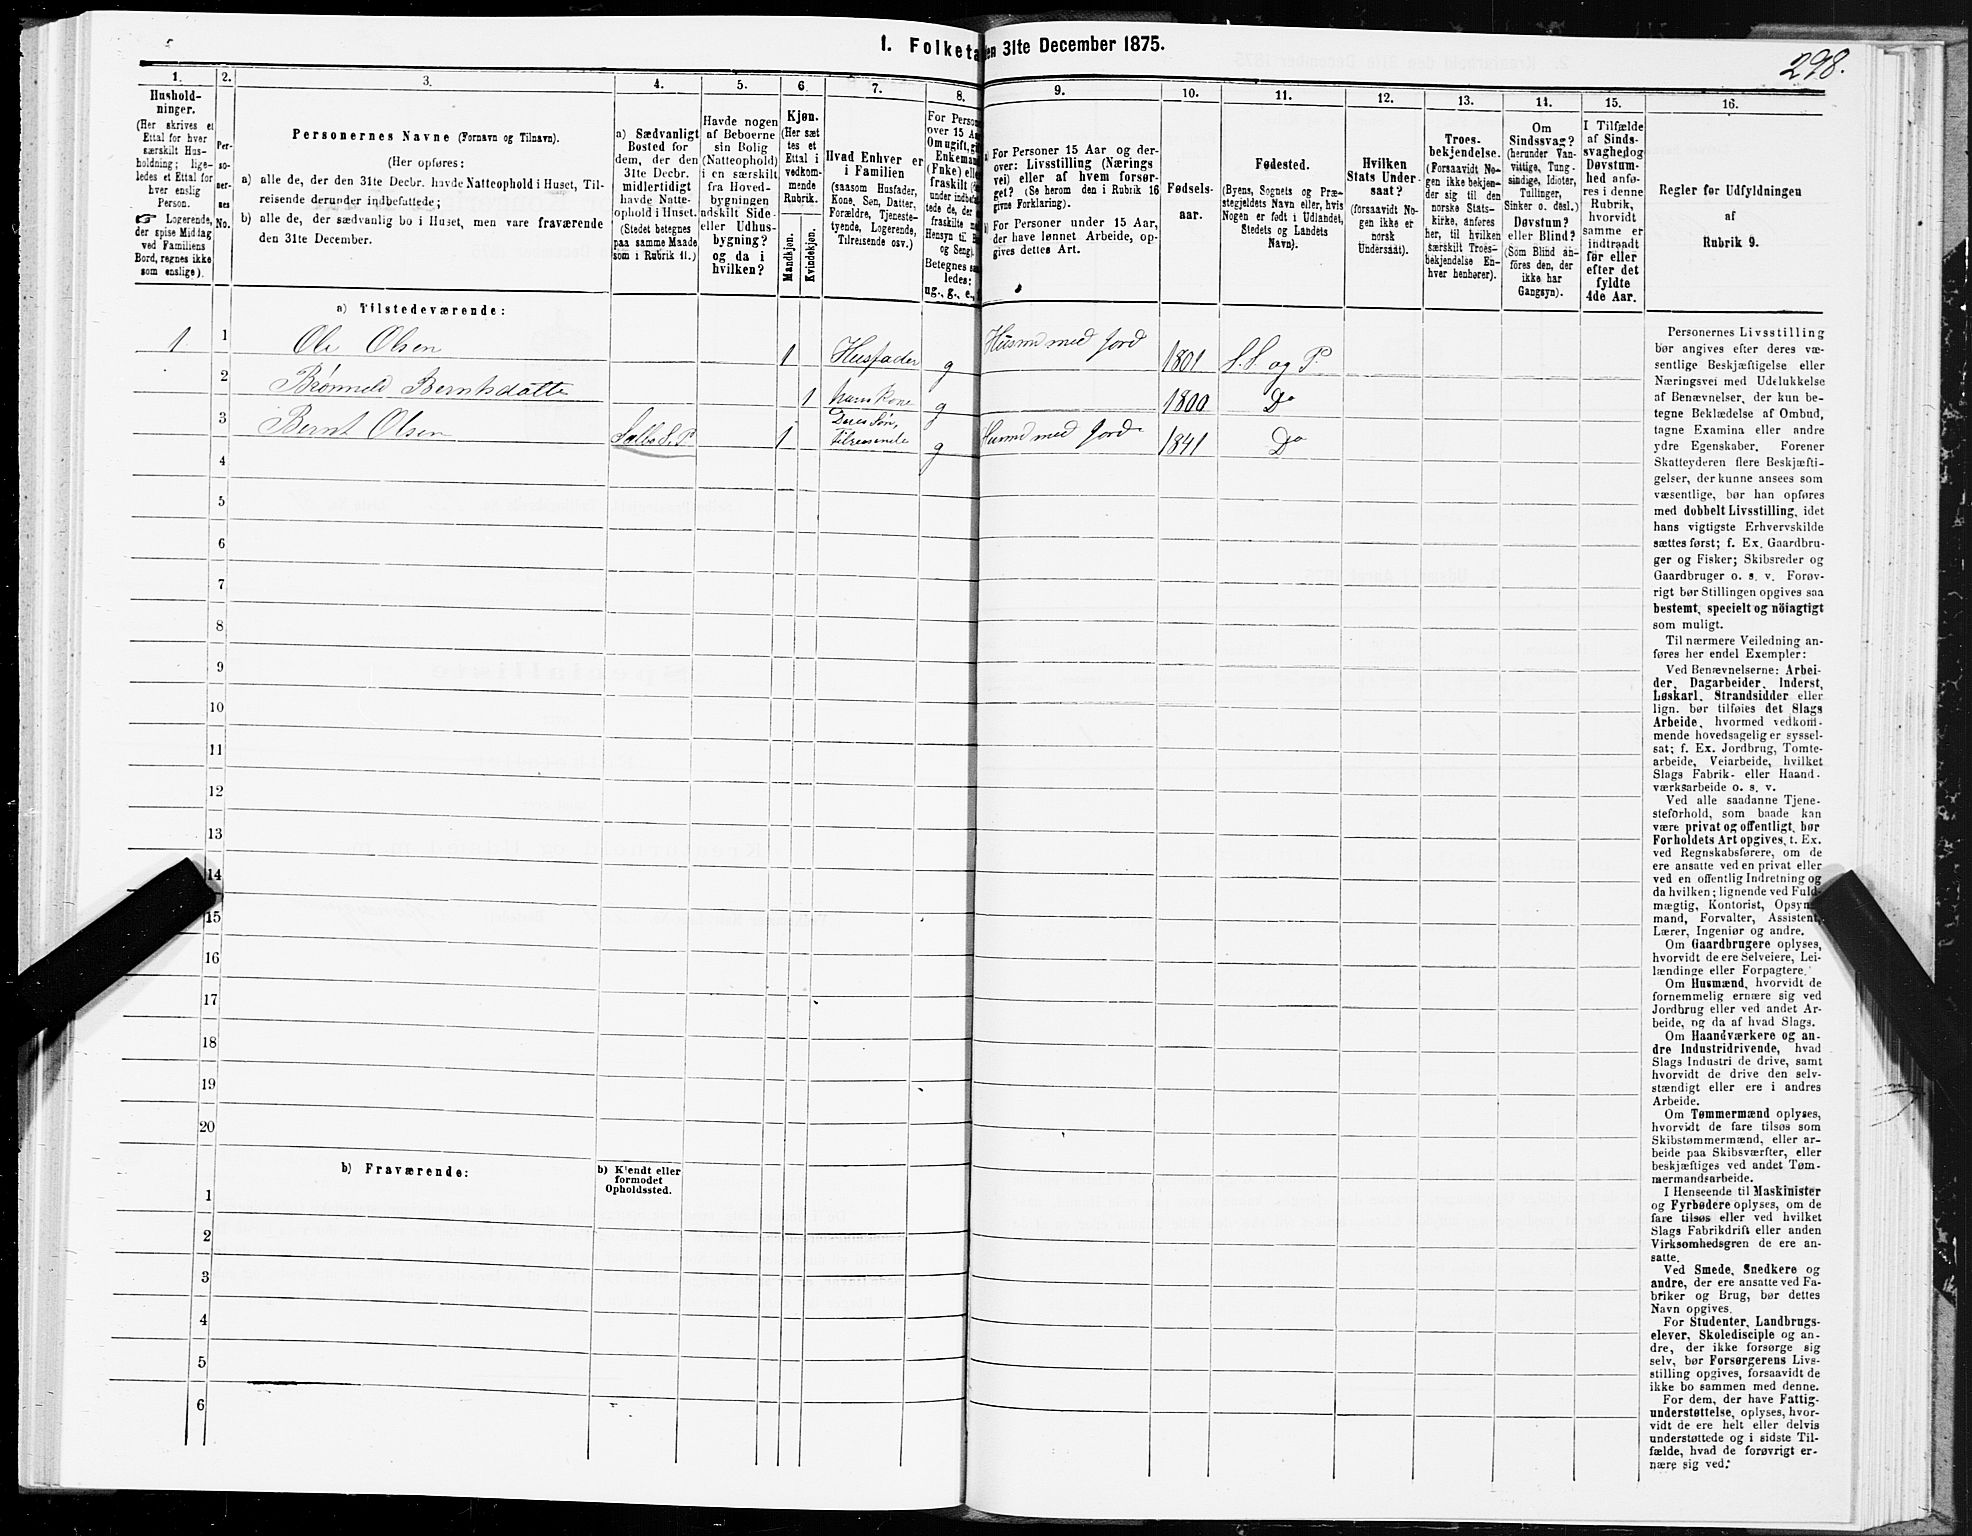 1. Folketa en 31te December 1875.
298.
1.
Hushold-
ninger.
(Her skrives et
Ettal for hver
særskilt Hus-
holdning; lige-
ledes et Ettal for
hver enslig
Person.
☞ Logerende,
der spise Middag
ved Familiens
Bord, regnes ikke
som enslige).
2.
Per-
so-
ner-
nes
No.
3.
Personernes Navne (Fornavn og Tilnavn).
(Her opføres:
a) alle de, der den 31te Decbr. havde Natteophold i Huset, Til-
reisende derunder indbefattede;
b) alle de, der sædvanlig bo i Huset, men vare fraværende
den 31te December.
4.
a) Sædvanligt
Bosted for
dem, der den
31te Decbr.
midlertidigt
havde Natte-
ophold i Huset.
(Stedet betegnes
paa samme Maade
som i Rubrik 11.)
5.
Havde nogen
af Beboerne
sin Bolig
(Natteophold)
i en særskilt
fra Hoved-
bygningen
adskilt Side-
eller Udhus-
bygning?
og da i
hvilken?
6.
Kjøn.
(Her sæt
tes et
Ettal i
vedkom-
mende
Rubrik.
Mandkjøn.
Kvindekjøn.
7.
Hvad Enhver er
i Familien
(saasom Husfader,
Kone, Søn, Datter,
Forældre, Tjeneste-
tyende, Logerende,
Tilreisende osv.)
8.
For Person
over 15 Aa
Om ugift, gi
Enkemand
(Enke) elle
fraskilt
under indbef
tede de, der
fraskilte
Hensyn til B
og Seng).
Betegnes saa
ledes:
ug., g., e.,
9.
a) For Personer 15 Aar og der-
over: Livsstilling (Nærings
vei) eller af hvem forsør-
get? (Se herom den i Rubrik 16
givne Forklaring).
b) For Personer under 15 Aar,
der have lønnet Arbeide, op-
gives dettes Art.
10.
Fødsels-
aar.
11.
Fødested.
(Byens, Sognets og Præ-
stegjeldets Navn eller, hvis
Nogen er født i Udlandet,
Stedets og Landets
Navn).
12.
Hvilken
Stats Under-
saat?
(forsaavidt No-
gen ikke er
norsk
Undersaat).
13.
Troes-
bekjendelse.
(Forsaavidt No-
gen ikke bekjen-
der sig til den
norske Stats-
kirke, anføres
her, til hvilken
særskilt Troes-
bekjendelse En-
hver henhører).
14.
Om
Sindssvag?
(herunder Van-
vittige, Tung-
sindige, Idioter,
Tullinger,
Sinker o. desl.)
Døvstum?
eller Blind?
(Som Blind an-
føres den, der
ikke har
Gangsyn).
15.
I Tilfælde
af Sinds-
svaghed og
Døvstum-
hed anfø-
res i denne
Rubrik,
hvorvidt
samme er
indtraadt
før eller
efter det
fyldte
4de Aar.
16.
Regler for Udfyldningen
af
Rubrik 9.
a) Tilstedeværende:
1 1 Ole Olsen 1 Husfader g Husmd med Jord 1801 S.S. og P.
2 Brønneld Berntsdatte 1 hans Kone g 1800 Do
3 Bernt Olsen Selbo S. P 1 Deres Søn, Tilreisende g Husmd med Jord 1841 Do
4
5
6
7
8
9
10
11
12
13
14
15
16
17
18
19
20
b) Fraværende:
b) Kjendt eller
formodet
Opholdssted.
1
2
3
4
5
6
Personernes Livsstilling
bør angives efter deres væ-
sentlige Beskjæftigelse eller
Næringsvei med Udelukkelse
af Benævnelser, der kun be-
tegne Beklædelse af Ombud,
tagne Examina eller andre
ydre Egenskaber. Forener
Skatteyderen flere Beskjæfti-
gelser, der kunne ansees som
væsentlige, bør han opføres
med dobbelt Livsstilling, idet
hans vigtigste Erhvervskilde
sættes først; f. Ex. Gaardbru-
ger og Fisker; Skibsreder og
Gaardbruger o. s. v. Forøv-
rigt bør Stillingen opgives saa
bestemt, specielt og nöiagtigt
som muligt.
Til nærmere Veiledning an-
føres her endel Exempler:
Ved Benævnelserne: Arbei-
der, Dagarbeider, Inderst,
Løskarl, Strandsidder eller
lign. bør tilføies det Slags
Arbeide, hvormed vedkom-
mende hovedsagelig er syssel-
sat; f. Ex. Jordbrug, Tomte-
arbeide, Veiarbeide, hvilket
Slags Fabrik- eller Haand-
værksarbeide o. s. v.
Ved alle saadanne Tjene-
steforhold, som baade kan
være privat og offentligt, bør
Forholdets Art opgives, t. Ex.
ved Regnskabsførere, om de
ere ansatte ved en privat eller
ved en offentlig Indretning og
da hvilken; lignende ved Fuld-
mægtig, Kontorist, Opsyns-
mand, Forvalter, Assistent,
Lærer, Ingeniør og andre.
Om Gaardbrugere oplyses,
hvorvidt de ere Selveiere, Lei-
lændinge eller Forpagtere.
Om Husmænd, hvorvidt de
fornemmelig ernære sig ved
Jordbrug eller ved andet Ar-
beide, og da af hvad Slags.
Om Haandværkere og an-
dre Industridrivende, hvad
Slags Industri de drive, samt
hvorvidt de drive den selv-
stændigt eller ere i andres
Arbeide.
Om Tømmermænd oplyses,
hvorvidt de fare tilsøs som
Skibstømmermænd, eller ar-
beide paa Skibsværfter, eller
beskjæftiges ved andet Tøm-
mermandsarbeide.
I Henseende til Maskinister
og Fyrbødere oplyses, om de
fare tilsøs eller ved hvilket
Slags Fabrikdrift eller anden
Virksomhedsgren de ere an-
satte.
Ved Smede, Snedkere og
andre, der ere ansatte ved Fa-
briker og Brug, bør dettes
Navn opgives.
For Studenter, Landbrugs-
elever, Skoledisciple og an-
dre, der ikke forsørge sig
selv, bør Forsørgerens Livs-
stilling opgives, forsaavidt de
ikke bo sammen med denne.
For dem, der have Fattig-
understøttelse, oplyses, hvor-
vidt de ere helt eller delvis
understøttede og i sidste Til-
fælde, hvad de forøvrigt er-
nære sig ved.